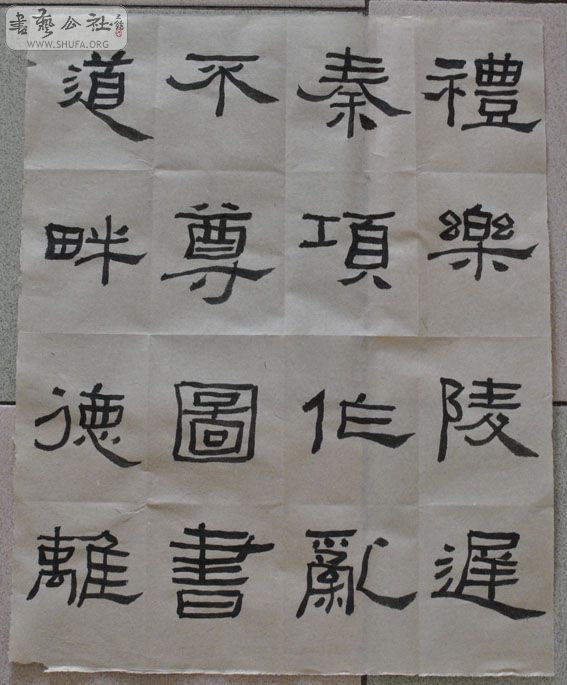 書藝公社
WWW.SHUFA.ORG
禮樂陵遲
秦項作亂
不尊圖書
道畔德離